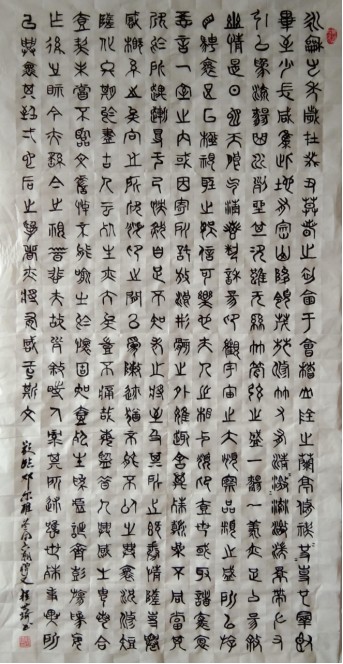 永和九年歲在癸丑暮春之初會于會稽山陰之蘭亭脩禊事也羣賢
畢至少長咸集此地有崇山峻領茂林脩竹又有清流激湍映帶左右
引以為流觴曲水列坐其次雖無絲竹管絃之盛一觴一詠亦足以暢敘
幽情是日也天朗氣清惠風和暢仰觀宇宙之大俯察品類之盛所以遊
目騁懷足以極視聽之娛信可樂也夫人之相與俯仰一世或取諸懷抱
悟言一室之內或因寄所託放浪形骸之外雖趣舍萬殊靜躁不同當其
欣於所遇暫得於己快然自足不知老之將至及其所之既倦情隨事遷
感慨係之矣向之所欣俛仰之間已為陳跡猶不能不以之興懷況脩短
隨化終期於盡古人云死生亦大矣豈不痛哉每覽昔人興感之由若合
一契未嘗不臨文嗟悼不能喻之於懷固知一死生為虛誕齊彭殤為妄
作後之視今亦猶今之視昔悲夫故列敘時人錄其所述雖世殊事異所
以興懷其致一也后之覽者亦將有感於斯文